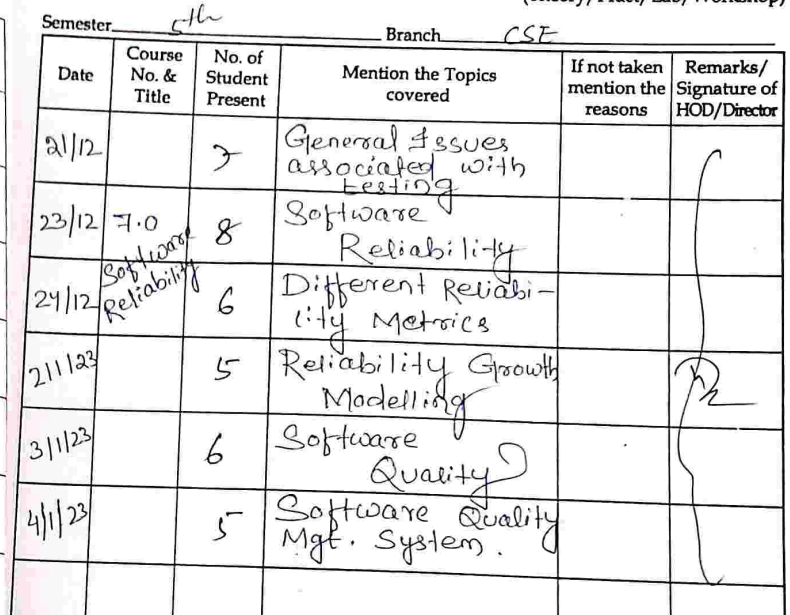 (Theory/Pract/Lab/Workshop)
Semester 5th Branch CSE
Date Course No. & Title No. of Student Present Mention the Topics covered If not taken mention the reasons Remarks/ Signature of HOD/Director
21/12 General Issues
associated with
testing
23/12 7.0 Software Reliability 8 Software
Reliability
24/12 6 Different Reliabi-
lity Metrics
2/1/23 5 Reliability Growth
Modelling
3/1/23 6 Software
Quality
4/1/23 5 Software Quality
Mgt. System.